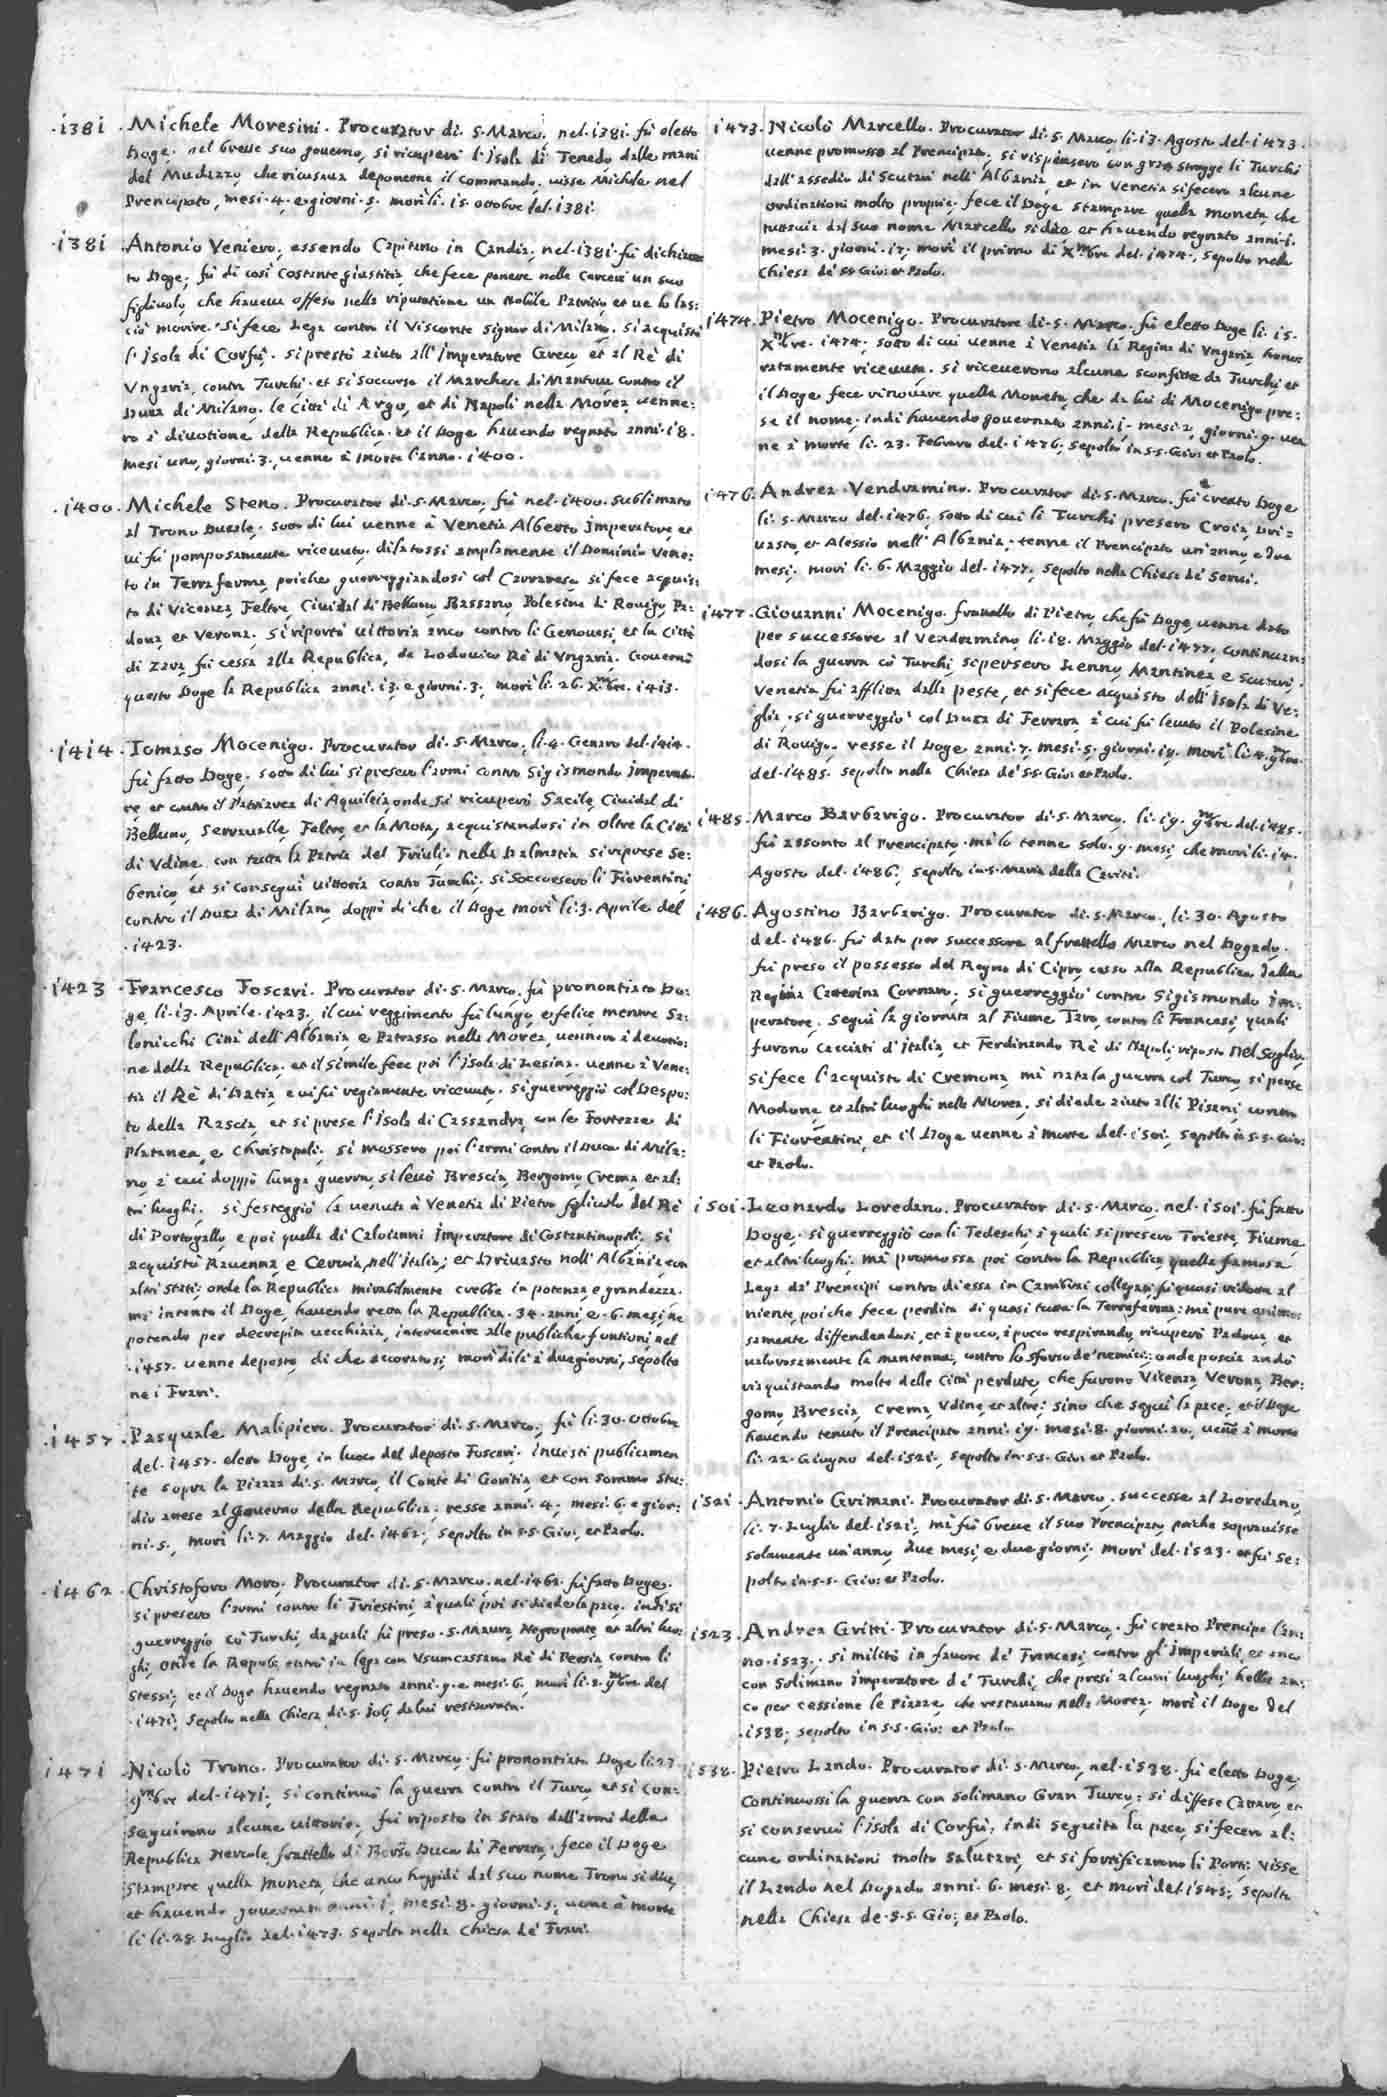 ·i38i· Michele Moresini. Procurator di. S. Marco, nel. i38i. fù eletto
Doge. nel breue suo gouerno, si ricuperò l'Isola di Tenedo dalle mani
del Mudazzo, che ricusaua deponerne il commando. uisse Michele nel
Prencipato, mesi. 4. e giorni. 5. morì li. i5. ottobre del. i38i.
·i38i· Antonio Veniero, essendo Capitano in Candia, nel. i38i. fù dichiara
to Doge, fù di così costante giustitia, che fece ponere nelle Carceri un suo
figliuolo, che haueua offeso nella riputatione un Nobile Patritio, et ue lo las:
ciò morire. Si fece Lega contro il Visconte Signor di Milano. Si acquistò
l'Isola di Corfù. si prestò aiuto all'Imperatore Greco, et al Rè di
Vngaria, contro Turchi. et si soccorse il Marchese di Mantoua contro il
Duca di Milano. le Città di Argo, et di Napoli nella Morea uenne:
ro à diuotione della Republica. et il Doge hauendo regnato anni. i8.
mesi uno, giorni. 3. uenne à morte l'anno. i400.
·i400· Michele Steno. Procurator di. S. Marco, fù nel. i400. sublimato
al Trono Ducale. sotto di lui uenne à Venetia Alberto Imperatore, et
ui fù pomposamente riceuuto. dilatossi amplamente il Dominio Vene:
to in Terra ferma, poiche guerreggiandosi col Carrarese, si fece acquis:
to di Vicenza, Feltre, Ciuidal di Belluno, Bassano, Polesine di Rouigo, Pa:
doua, et Verona. Si riportò uittoria anco contro li Genouesi, et la Città
di Zara, fù cessa alla Republica, da Lodouico Rè di Vngaria. Gouernò
questo Doge la Republica anni. i3. e giorni. 3. morì li. 26. Xmbre. i4i3.
·i4i4· Tomaso Mocenigo. Procurator di. S. Marco, li. 4. Genaro del. i4i4.
fù fatto Doge. sotto di lui si presero l'armi contro Sigismondo Imperato
re, et contro il Patriarca di Aquileia, onde si ricuperò Sacile, Ciuidal di
Belluno, Serraualle, Feltre, et la Mota, acquistandosi in oltre la Città
di Vdine, con tutta la Patria del Friuli. nella Dalmatia si riprese Se:
benico, et si conseguì uittoria contro Turchi. Si soccorsero li Fiorentini
contro il Duca di Milano, doppò di che il Doge morì li. 3. Aprile del
·i423·
·i423· Francesco Foscari. Procurator di. S. Marco, fù prononciato Do:
ge, li. i3. Aprile. i423. il cui reggimento fù lungo, e felice, mentre Sa:
lonicchi Città dell'Albania, e Patrasso nella Morea, uennero à deuotio:
ne della Republica, et il simile fece poi l'Isola di Lesina. uenne à Vene:
tia il Rè di Datia, e ui fù regiamente riceuuto. Si guerreggiò col Despo:
to della Rascia, et si prese l'Isola di Cassandra, con le Fortezze di
Platanea, e Christopoli. si mossero poi l'armi contro il Duca di Mila:
no, à cui doppò lunga guerra, si leuò Brescia, Bergomo, Crema, et al:
tri luoghi. si festeggiò la uenuta à Venetia di Pietro figliuolo del Rè
di Portogallo, e poi quella di Caloianni Imperatore di Costantinopoli. Si
acquistò Rauenna, e Ceruia, nell'Italia, et Driuasto nell'Albania, con
altri stati: onde la Republica mirabilmente crebbe in potenza, e grandezza.
mà intanto il Doge, hauendo retta la Republica. 34. anni, e. 6. mesi, ne
potendo per decrepita uecchiaia, interuenire alle publiche funtioni, nel
·i457· uenne deposto, di che accoratosi, morì di lì à due giorni, sepolto
ne i Frari.
·i457· Pasquale Malipiero. Procurator di. S. Marco, fù li. 30. Ottobre
del. i457. eletto Doge, in luoco del deposto Foscari. inuestì publicamen
te sopra la Piazza di. S. Marco, il Conte di Goritia, et con sommo stu:
dio attese al gouerno della Republica. resse anni. 4. mesi. 6. e gior:
ni. 5. morì li. 7. Maggio del. i462. sepolto in S.S. Gio: et Paolo.
·i462· Christoforo Moro. Procurator di. S. Marco, nel. i462. fù fatto Doge.
si presero l'armi contro li Triestini, à quali poi si diede la pace. indi si
guerreggiò cò Turchi, da quali fù preso. S. Maura, Negroponte, et altri luo:
ghi, onde la Repub. entrò in lega con Vsumcassano Rè di Persia, contro li
stessi, et il Doge hauendo regnato anni. 9. e mesi. 6. morì li. 9. 9mbre del
·i47i· sepolto nella Chiesa di. S. Iob, da lui restaurata.
·i47i· Nicolò Trono. Procurator di. S. Marco. fù prononciato Doge li. 23.
9mbre del. i47i. si continuò la guerra contro il Turco, et si con:
seguirono alcune uittorie. fù riposto in stato dall'armi della
Republica Hercole fratello di Borso Duca di Ferrara. fece il Doge
stampare quella moneta, che anco hoggidì dal suo nome Trono si dice,
et hauendo gouernato anni. i. mesi. 8. giorni. 5. uenne à morte
li li. 28. Luglio del. i473. sepolto nella Chiesa de' Frari.
i473· Nicolò Marcello. Procurator di. S. Marco, li. i3. Agosto del. i473.
uenne promosso al Prencipato. si rispinsero con gran stragge li Turchi
dall'assedio di Scutari nell'Albania, et in Venetia si fecero alcune
ordinationi molto proprie. fece il Doge stampare quella moneta, che
tuttauia dal suo nome Marcello si dice, et hauendo regnato anni. i.
mesi. 3. giorni. i7. morì il primo di Xmbre del. i474. sepolto nella
Chiesa de' SS. Gio: et Paolo.
i474· Pietro Mocenigo. Procuratore di. S. Marco. fù eletto Doge li. i5.
Xmbre. i474. sotto di cui uenne à Venetia la Regina di Vngaria, hono:
ratamente riceuuta. si riceuerono alcune sconfitte da Turchi, et
il Doge fece rinouare quella Moneta, che da lui di Mocenigo pre:
se il nome. indi hauendo gouernato anni. i. mesi. 2. giorni. 9. uen
ne à morte li. 23. Febraro del. i476. sepolto in S.S. Gio: et Paolo.
i476· Andrea Vendramino. Procurator di. S. Marco. fù creato Doge
li. 5. Marzo del. i476. sotto di cui li Turchi presero Croia, Dri:
uasto, et Alessio nell'Albania: tenne il Prencipato un'anno, e due
mesi. morì li. 6. Maggio del. i477. sepolto nella Chiesa de' Serui.
i477· Giouanni Mocenigo. fratello di Pietro, che fù Doge, uenne dato
per successore al Vendramino, li. i8. Maggio del. i477. continuan:
dosi la guerra cò Turchi, si persero Lenno, Mantinea, e Scutari.
Venetia fù afflitta dalla peste, et si fece acquisto dell'Isola di Ve:
glia. si guerreggiò col Duca di Ferrara, à cui fù leuato il Polesine
di Rouigo. resse il Doge anni. 7. mesi. 5. giorni. i7. morì li. 4. 9mbre.
del. i485. sepolto nella Chiesa de' S.S. Gio: et Paolo.
i485· Marco Barbarigo. Procurator di. S. Marco, li. i9. 9mbre del. i485.
fù assonto al Prencipato. mà lo tenne solo. 9. mesi, che morì li. i4.
Agosto del. i486. sepolto in. S. Maria della Carità.
i486· Agostino Barbarigo. Procurator di. S. Marco, li. 30. Agosto
del. i486. fù dato per successore al fratello Marco nel Dogado.
fù preso il possesso del Regno di Cipro, cesso alla Republica dalla
Regina Catterina Cornaro, si guerreggiò contro Sigismondo Im:
peratore. Seguì la giornata al Fiume Taro, contro li Francesi, quali
furono cacciati d'Italia, et Ferdinando Rè di Napoli riposto nel Soglio,
si fece l'acquisto di Cremona, mà nata la guerra col Turco, si perse
Modone, et altri luoghi nella Morea, si diede aiuto alli Pisani contro
li Fiorentini, et il Doge uenne à morte del. i50i. sepolto in S.S. Gio:
et Paolo.
i50i· Leonardo Loredano. Procurator di. S. Marco, nel. i50i. fù fatto
Doge. si guerreggiò con li Tedeschi, à quali si presero Trieste, Fiume,
et altri luoghi. mà promossa poi contro la Republica quella famosa
Lega de' Prencipi contro di essa in Cambrai collegati, fù quasi ridotta al
niente, poiche fece perdita di quasi tutta la Terraferma: mà pure animo:
samente diffendendosi, et à pocco, à pocco respirando, ricuperò Padoua, et
ualorosamente la mantenne, contro lo sforzo de' nemici; onde poscia andò
riaquistando molte delle Città perdute, che furono Vicenza, Verona, Ber:
gomo, Brescia, Crema, Vdine, et altre; sino che seguì la pace, et il Doge
hauendo tenuto il Prencipato anni. i9. mesi. 8. giorni. 20. uenne à morte
li. 22. Giugno del. i52i. sepolto in. S.S. Gio: et Paolo.
i52i· Antonio Grimani. Procurator di. S. Marco. successe al Loredano,
li. 7. Luglio del. i52i. mà fù breue il suo Prencipato, poiche soprauisse
solamente un'anno, due mesi, e due giorni. morì del. i523. et fù se:
polto in. S.S. Gio: et Paolo.
i523· Andrea Gritti. Procurator di. S. Marco. fù creato Prencipe l'an:
no. i523. si militò in fauore de' Francesi contro gl'Imperiali, et anco
con Solimano Imperatore de' Turchi, che presi alcuni luoghi, hebbe an:
co per cessione le Piazze, che restauano nella Morea. morì il Doge del
·i538· sepolto in S.S. Gio: et Paolo.
i538· Pietro Lando. Procurator di. S. Marco, nel. i538. fù eletto Doge,
Continuossi la guerra con Solimano Gran Turco: si diffese Cattaro, et
si conseruò l'Isola di Corfù, indi seguita la pace, si fecero al:
cune ordinationi molto salutari, et si fortificarono li Porti. Visse
il Lando nel Dogado anni. 6. mesi. 8. et morì del. i545. sepolto
nella Chiesa de. S.S. Gio: et Paolo.